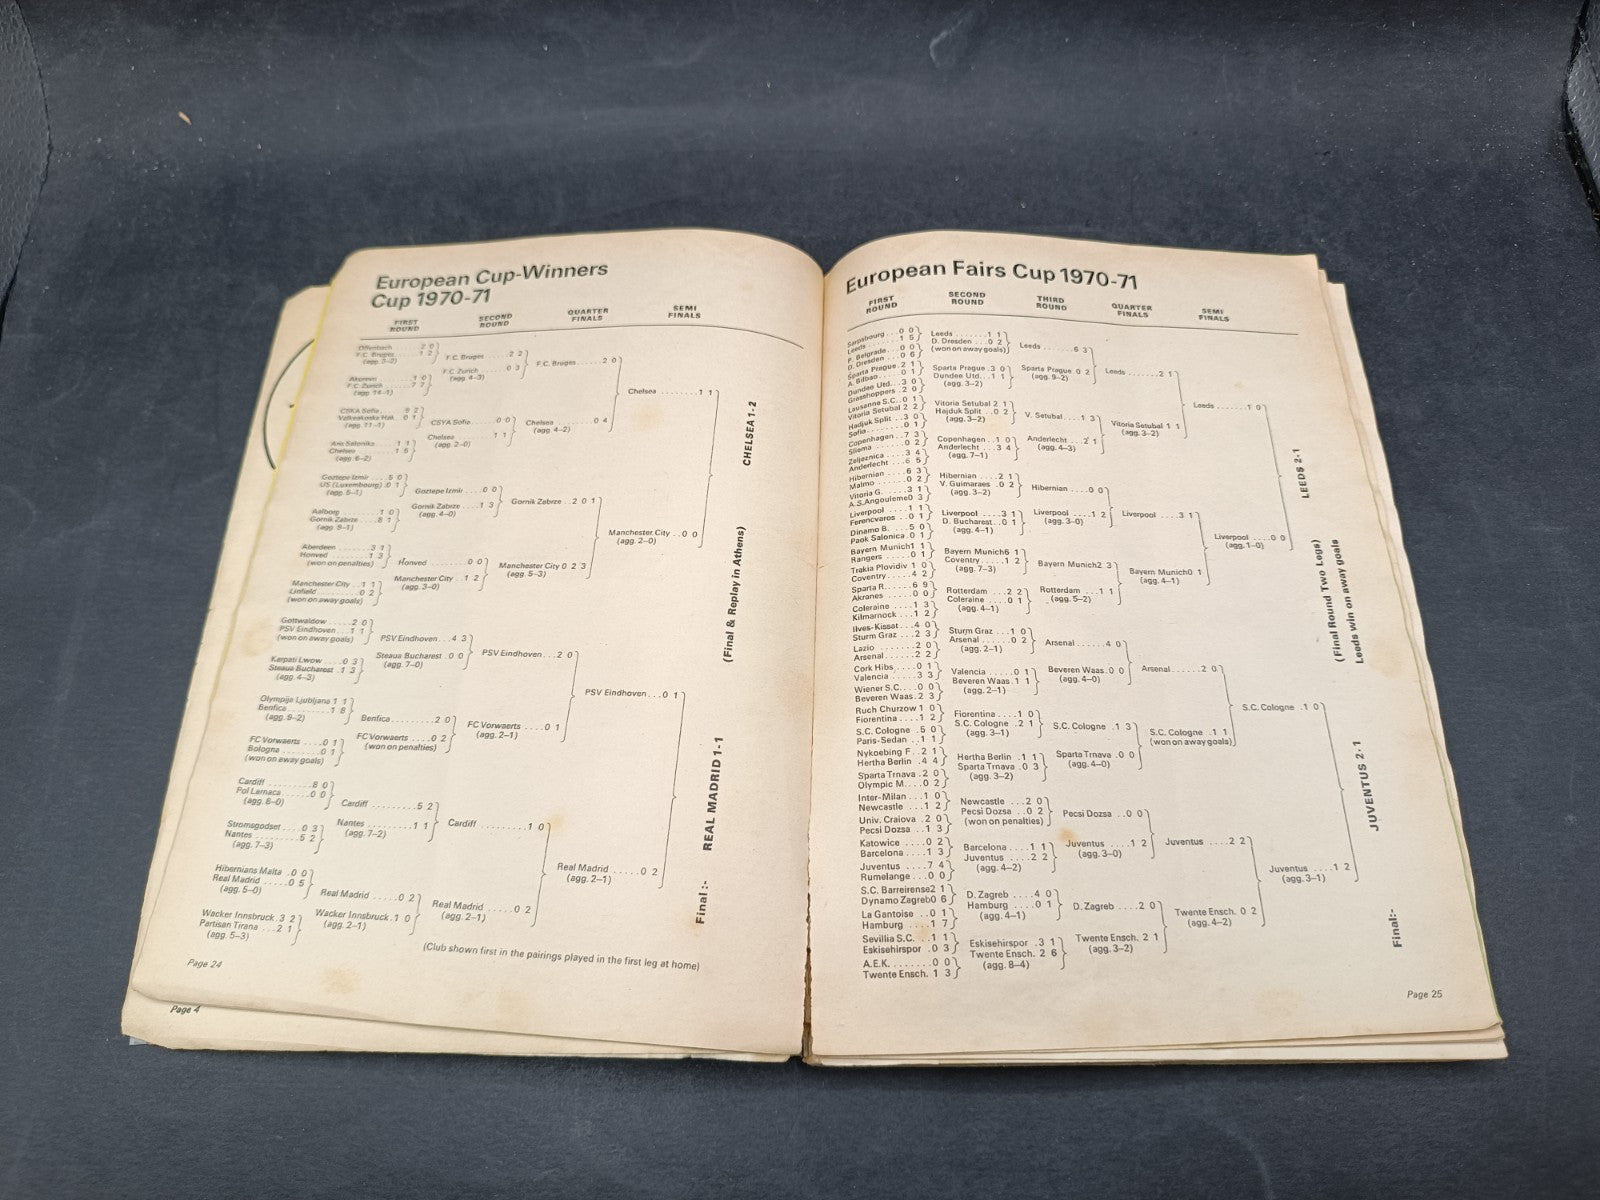 European Cup-Winners
Cup 1970-71
FIRST ROUND
SECOND ROUND
QUARTER FINALS
SEMI FINALS
Offenbach ........2 0
F.C. Bruges ......1 2
(agg. 3-2)
Akureyri ........1 0
F.C. Zurich ......7 7
(agg. 14-1)
CSKA Sofia ......9 2
Valkeakoski Hak. ..0 1
(agg. 11-1)
Aris Salonika .....1 1
Chelsea ..........1 5
(agg. 6-2)
Goztepe Izmir .....5 0
US (Luxembourg) .0 1
(agg. 5-1)
Aalborg ..........1 0
Gornik Zabrze ....8 1
(agg. 9-1)
Aberdeen ........3 1
Honved ..........1 3
(won on penalties)
Manchester City ...1 1
Linfield ..........0 2
(won on away goals)
Gottwaldow ......2 0
PSV Eindhoven ...1 1
(won on away goals)
Karpati Lwow .....0 3
Steaua Bucharest .1 3
(agg. 4-3)
Olympija Ljubljana 1 1
Benfica ...........1 8
(agg. 9-2)
FC Vorwaerts ....0 1
Bologna .........0 1
(won on away goals)
Cardiff ..........8 0
Pol Larnaca ......0 0
(agg. 8-0)
Stromsgodset ....0 3
Nantes ..........5 2
(agg. 7-3)
Hibernians Malta .0 0
Real Madrid .....0 5
(agg. 5-0)
Wacker Innsbruck .3 2
Partisan Tirana ...2 1
(agg. 5-3)
F.C. Bruges ......2 2
F.C. Zurich ......0 3
(agg. 4-3)
CSYA Sofia ......0 0
Chelsea .........1 1
(agg. 2-0)
Goztepe Izmir ....0 0
Gornik Zabrze ....1 3
(agg. 4-0)
Honved .........0 0
Manchester City ..1 2
(agg. 3-0)
PSV Eindhoven ...4 3
Steaua Bucharest .0 0
(agg. 7-0)
Benfica .........2 0
FC Vorwaerts ....0 2
(won on penalties)
Cardiff .........5 2
Nantes .........1 1
(agg. 7-2)
Real Madrid .....0 2
Wacker Innsbruck .1 0
(agg. 2-1)
F.C. Bruges ......2 0
Chelsea .........0 4
(agg. 4-2)
Gornik Zabrze ..2 0 1
Manchester City 0 2 3
(agg. 5-3)
PSV Eindhoven ...2 0
FC Vorwaerts ....0 1
(agg. 2-1)
Cardiff .........1 0
Real Madrid .....0 2
(agg. 2-1)
Chelsea .........1 1
Manchester City ..0 0
(agg. 2-0)
PSV Eindhoven ...0 1
Real Madrid .....0 2
(agg. 2-1)
Final :- REAL MADRID 1-1 CHELSEA 1-2
(Final & Replay in Athens)
(Club shown first in the pairings played in the first leg at home)
Page 24
Page 4
European Fairs Cup 1970-71
FIRST ROUND
SECOND ROUND
THIRD ROUND
QUARTER FINALS
SEMI FINALS
Sarpsbourg ..0 0
Leeds .......1 5
P. Belgrade ...0 0
D. Dresden ...0 6
Sparta Prague .2 1
A. Bilbao ....0 1
Dundee Utd...3 0
Grasshoppers .2 0
Lausanne S.C..0 1
Vitoria Setubal 2 2
Hadjuk Split ..3 0
Sofia ........0 1
Copenhagen ..7 3
Sliema .......0 2
Zeljeznica ....3 4
Anderlecht ...6 5
Hibernian ....6 3
Malmo ......0 2
Vitoria G. ....3 1
A.S.Angouleme0 3
Liverpool ....1 1
Ferencvaros ..0 1
Dinamo B. ...5 0
Paok Salonica .0 1
Bayern Munich1 1
Rangers .....0 1
Trakia Plovidiv 1 0
Coventry .....4 2
Sparta R......6 9
Akranes .....0 0
Coleraine ....1 3
Kilmarnock ...1 2
Ilves-Kissat ...4 0
Sturm Graz ...2 3
Lazio .......2 0
Arsenal ......2 2
Cork Hibs ....0 1
Valencia .....3 3
Wiener S.C....0 0
Beveren Waas.2 3
Ruch Churzow 1 0
Fiorentina ....1 2
S.C. Cologne .5 0
Paris-Sedan ..1 1
Nykoebing F. ..2 1
Hertha Berlin .4 4
Sparta Trnava .2 0
Olympic M....0 2
Inter-Milan ...1 0
Newcastle ...1 2
Univ. Craiova .2 0
Pecsi Dozsa ..1 3
Katowice ....0 2
Barcelona ....1 3
Juventus .....7 4
Rumelange ...0 0
S.C. Barreirense2 1
Dynamo Zagreb0 6
La Gantoise ..0 1
Hamburg ....1 7
Sevillia S.C. ..1 1
Eskisehirspor .0 3
A.E.K. .......0 0
Twente Ensch. 1 3
Leeds .......1 1
D. Dresden ...0 2
(won on away goals)
Sparta Prague .3 0
Dundee Utd...1 1
(agg. 3-2)
Vitoria Setubal 2 1
Hajduk Split ..0 2
(agg. 3-2)
Copenhagen ..1 0
Anderlecht ...3 4
(agg. 7-1)
Hibernian ....2 1
V. Guimaraes .0 2
(agg. 3-2)
Liverpool .....3 1
D. Bucharest..0 1
(agg. 4-1)
Bayern Munich6 1
Coventry .....1 2
(agg. 7-3)
Rotterdam ...2 2
Coleraine ....0 1
(agg. 4-1)
Sturm Graz ...1 0
Arsenal ......0 2
(agg. 2-1)
Valencia .....0 1
Beveren Waas 1 1
(agg. 2-1)
Fiorentina ....1 0
S.C. Cologne .2 1
(agg. 3-1)
Hertha Berlin .1 1
Sparta Trnava .0 3
(agg. 3-2)
Newcastle ...2 0
Pecsi Dozsa ..0 2
(won on penalties)
Barcelona ....1 1
Juventus .....2 2
(agg. 4-2)
D. Zagreb ....4 0
Hamburg ....0 1
(agg. 4-1)
Eskisehirspor .3 1
Twente Ensch. 2 6
(agg. 8-4)
Leeds .......6 3
Sparta Prague 0 2
(agg. 9-2)
V. Setubal ....1 3
Anderlecht ...2 1
(agg. 4-3)
Hibernian ....0 0
Liverpool ....1 2
(agg. 3-0)
Bayern Munich2 3
Rotterdam ...1 1
(agg. 5-2)
Arsenal ......4 0
Beveren Waas 0 0
(agg. 4-0)
S.C. Cologne .1 3
Sparta Trnava .0 0
(agg. 4-0)
Pecsi Dozsa ..0 0
Juventus ....1 2
(agg. 3-0)
D. Zagreb ....2 0
Twente Ensch. 2 1
(agg. 3-2)
Leeds .......2 1
Vitoria Setubal 1 1
(agg. 3-2)
Liverpool ....3 1
Bayern Munich0 1
(agg. 4-1)
Arsenal......2 0
S.C. Cologne .1 1
(won on away goals)
Juventus .....2 2
Twente Ensch. 0 2
(agg. 4-2)
Leeds .......1 0
Liverpool ....0 0
(agg. 1-0)
S.C. Cologne .1 0
Juventus .....1 2
(agg. 3-1)
Final:- JUVENTUS 2·1 LEEDS 2·1
(Final Round Two Legs)
Leeds win on away goals
Page 25